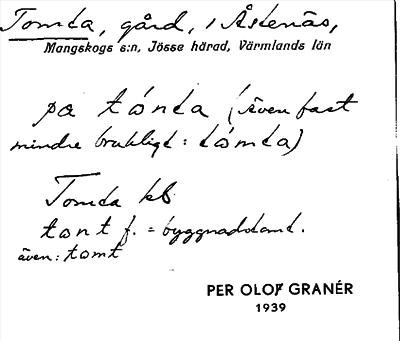 Tomta, gård, i Åstenäs,
Mangskogs s:n, Jösse härad, Värmlands län
på tònta (även fast
mindre brukligt: tòmta)
Tomta kb
tont f. = byggnadstomt.
även: tomt
PER OLOF GRANÉR
1939